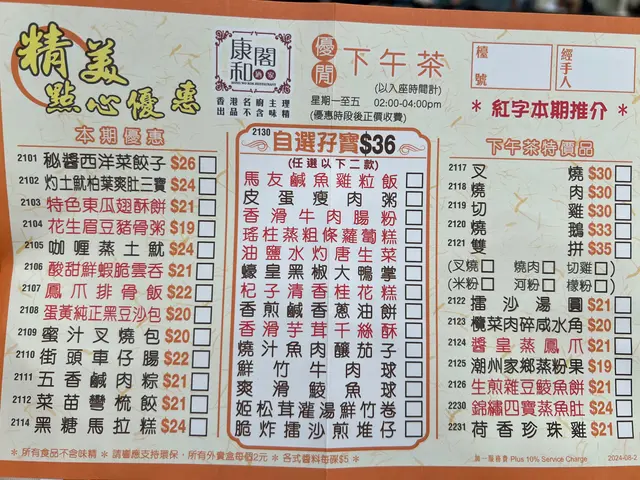 精美
點心優惠
康閣
和酒家
香港名廚主理
出品不含味精
優閒 下午茶
星期一至五
(以入座時間計)
02:00-04:00pm
(優惠時段後正價收費)
檯號
經手人
* 紅字本期推介 *
本期優惠
2101 秘醬西洋菜餃子 $26
2102 灼土魷柏葉爽肚三寶 $24
2103 特色東瓜翅酥餅 $21
2104 花生眉豆豬骨粥 $19
2105 咖喱蒸土魷 $24
2106 酸甜鮮蝦脆雲吞 $21
2107 鳳爪排骨飯 $22
2108 蛋黃純正黑豆沙包 $20
2109 蜜汁叉燒包 $20
2110 街頭車仔腸 $22
2111 五香鹹肉粽 $21
2112 菜苗彎梳餃 $21
2114 黑糖馬拉糕 $24
2130 自選孖寶 $36
(任選以下二款)
馬友鹹魚雞粒飯
皮蛋瘦肉粥
香滑牛肉腸粉
瑤柱蒸粗條蘿蔔糕
油鹽水灼唐生菜
蠔皇黑椒大鴨掌
杞子清香桂花糕
香煎鹹香蔥油餅
香滑芋茸千絲酥
燒汁魚肉釀茄子
鮮竹牛肉球
爽滑鯪魚球
姬松茸灌湯鮮竹卷
脆炸擂沙煎堆仔
下午茶特價品
2117 叉燒 $30
2118 燒肉 $30
2119 切雞 $30
2120 燒鵝 $33
2121 雙拼 $35
(叉燒 燒肉 切雞)
(米粉 河粉 檬粉)
2122 擂沙湯圓 $21
2123 欖菜肉碎咸水角 $20
2124 醬皇蒸鳳爪 $21
2125 潮州家鄉蒸粉果 $19
2126 生煎雜豆鯪魚餅 $21
2230 錦繡四寶蒸魚肚 $24
2231 荷香珍珠雞 $21
* 所有食品不含味精 * 請響應支持環保,所有外賣盒每個2元 * 各式醬料每碟$5 *
加一服務費 Plus 10% Service Charge
2024-08-2